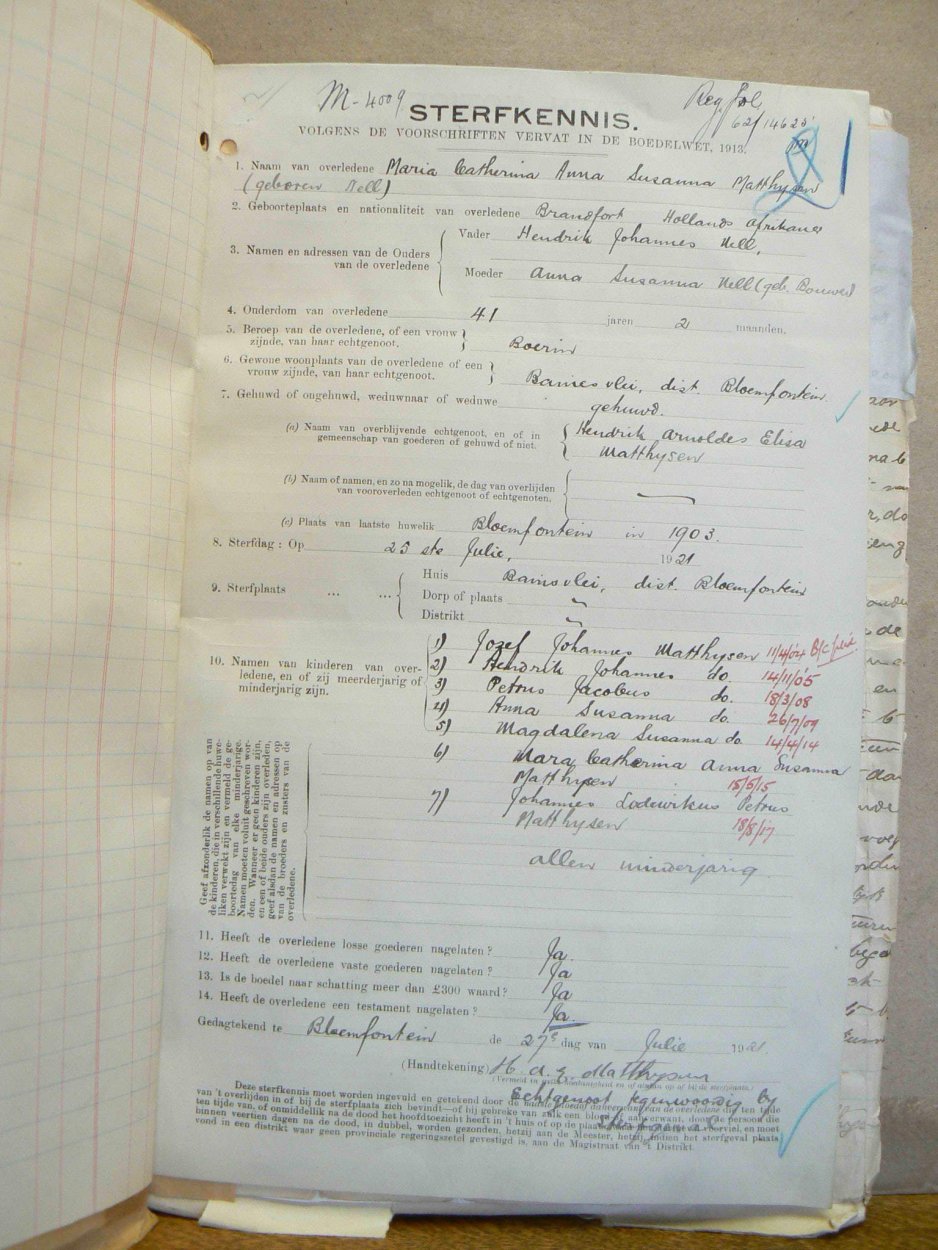 M - 4009
Reg. fol.
62/14625
STERFKENNIS.
VOLGENS DE VOORSCHRIFTEN VERVAT IN DE BOEDELWET, 1913.
1. Naam van overledene Maria Catherina Anna Susanna Matthysen
(geboren Nell)
2. Geboorteplaats en nationaliteit van overledene Brandfort Hollands Afrikaner
3. Namen en adressen van de Ouders van de overledene
Vader Hendrik Johannes Nell,
Moeder Anna Susanna Nell (geb. Bouwer)
4. Ouderdom van overledene 41 jaren 2 maanden.
5. Beroep van de overledene, of een vrouw
zijnde, van haar echtgenoot. Boerin
6. Gewone woonplaats van de overledene of een
vrouw zijnde, van haar echtgenoot. Bainsvlei, dist. Bloemfontein
7. Gehuwd of ongehuwd, weduwnaar of weduwe gehuwd.
(a) Naam van overblijvende echtgenoot, en of in
gemeenschap van goederen of gehuwd of niet.
Hendrik Arnoldes Elisa
Matthysen
(b) Naam of namen, en zo na mogelik, de dag van overlijden
van vooroverleden echtgenoot of echtgenoten.
(c) Plaats van laatste huwelik Bloemfontein in 1903.
8. Sterfdag: Op 25 ste Julie, 1921
9. Sterfplaats ... ...
Huis Bainsvlei, dist. Bloemfontein
Dorp of plaats "
Distrikt "
10. Namen van kinderen van over-
ledene, en of zij meerderjarig of
minderjarig zijn.
1) Jozef Johannes Matthysen 11/4/04
2) Hendrik Johannes do. 14/11/05
3) Petrus Jacobus do. 18/3/08
4) Anna Susanna do. 26/7/09
5) Magdalena Susanna do. 14/4/14
6) Mara Catherina Anna Susanna
Matthysen 15/5/15
7) Johannes Lodewikus Petrus
Matthysen 18/8/17
allen minderjarig
Geef afzonderlik de namen op van
de kinderen, die in verschillende huwe-
liken verwekt zijn en vermeld de ge-
boortedag van elke minderjarige.
Namen moeten voluit geschreven wor-
den. Wanneer er geen kinderen zijn,
en een of beide ouders zijn overleden,
geef alsdan de namen en adressen op
van de broeders en zusters van de
overledene.
11. Heeft de overledene losse goederen nagelaten? Ja.
12. Heeft de overledene vaste goederen nagelaten? Ja
13. Is de boedel naar schatting meer dan £300 waard? Ja
14. Heeft de overledene een testament nagelaten? Ja.
Gedagtekend te Bloemfontein de 27e dag van Julie 1921
(Handtekening) H. A. E. Matthysen
Echtgenoot tegenwoordig by
Deze sterfkennis moet worden ingevuld en getekend door de
van 't overlijden in of bij de sterfplaats zich bevindt
ten tijde van, of onmiddellik na de dood het hoofdtoezicht heeft in 't huis of op de plaats
binnen veertien dagen na de dood, in dubbel, worden gezonden, hetzij aan de Meester, hetzij, indien het sterfgeval plaats
vond in een distrikt waar geen provinciale regeringszetel gevestigd is, aan de Magistraat van 't Distrikt.